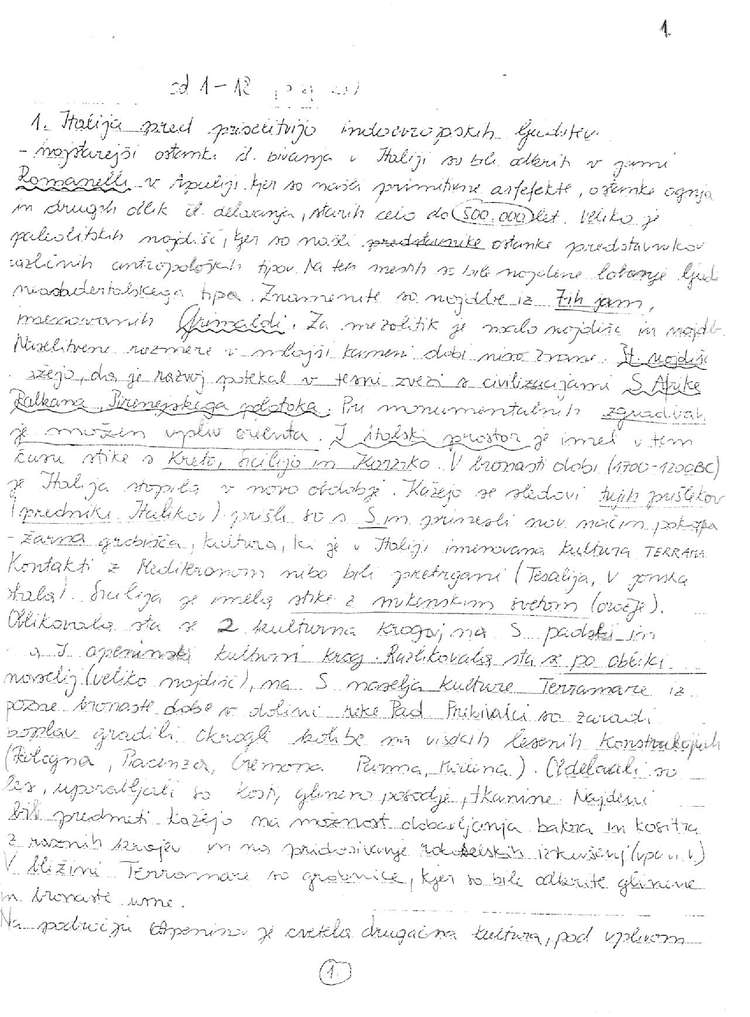 1.
od 1-12
1. Italija pred priselitvijo indoevropskih ljudstev
- najstarejši ostanki čl. bivanja v Italiji so bili odkriti v jami
Romanelli v Apuliji kjer so našli primitivne artefekte, ostanke ognja
in drugih oblik čl. delovanja, starih celo do 500.000 let. Veliko je
paleolitskih najdišč, kjer so našli predstavnike ostanke predstavnikov
različnih antropoloških tipov. Na teh mestih so bile najdene lobanje ljud
neandertalskega tipa. Znamenite so najdbe iz 7ih jam,
imenovanih Grimaldi. Za mezolitik je malo najdišč in najdb.
Naselitvene razmere v mlajši kameni dobi niso znane. Št. najdišč
kažejo, da je razvoj potekal v tesni zvezi s civilizacijami S Afrike
Balkana, Pirenejskega polotoka. Pri monumentalnih zgradbah
je možen vpliv orienta. J italski prostor je imel v tem
času stike s Kreto, Sicilijo in Korziko. V bronasti dobi (1700-1200BC)
je Italija stopila v novo obdobje. Kažejo se sledovi tujih prišlekov
(predniki Italikov) prišli so s S in prinesli nov način pokopa
- žarna grobišča, kultura, ki je v Italiji imenovana kultura TERRAMA
Kontakti z Mediteranom niso bili pretrgani (Tesalija, V jonska
obala). Sicilija je imela stike z mikenskim svetom (orožje).
Oblikovala sta se 2 kulturna kroga na S padski in
na J apeninski kulturni krog. Razlikovala sta se po obliki
naselij (veliko najdišč), na S naselja kulture Terramare iz
pozne bronaste dobe v dolini reke Pad. Prebivalci so zaradi
poplav gradili okrogle kolibe na visokih lesenih konstrukcijah
(Bologna, Piacenza, Cremona Parma, Modena). Obdelovali so
les, uporabljali so kost, glineno posodje, tkanine. Najdeni
bili predmeti kažejo na možnost dobavljanja bakra in kositra
z raznih krajev in na pridobivanje izkušenj
V bližini Terramare so grobnice, kjer so bile odkrite glinene
in bronaste urne.
Na področju Apenina je cvetela drugačna kultura, pod vplivom
1.